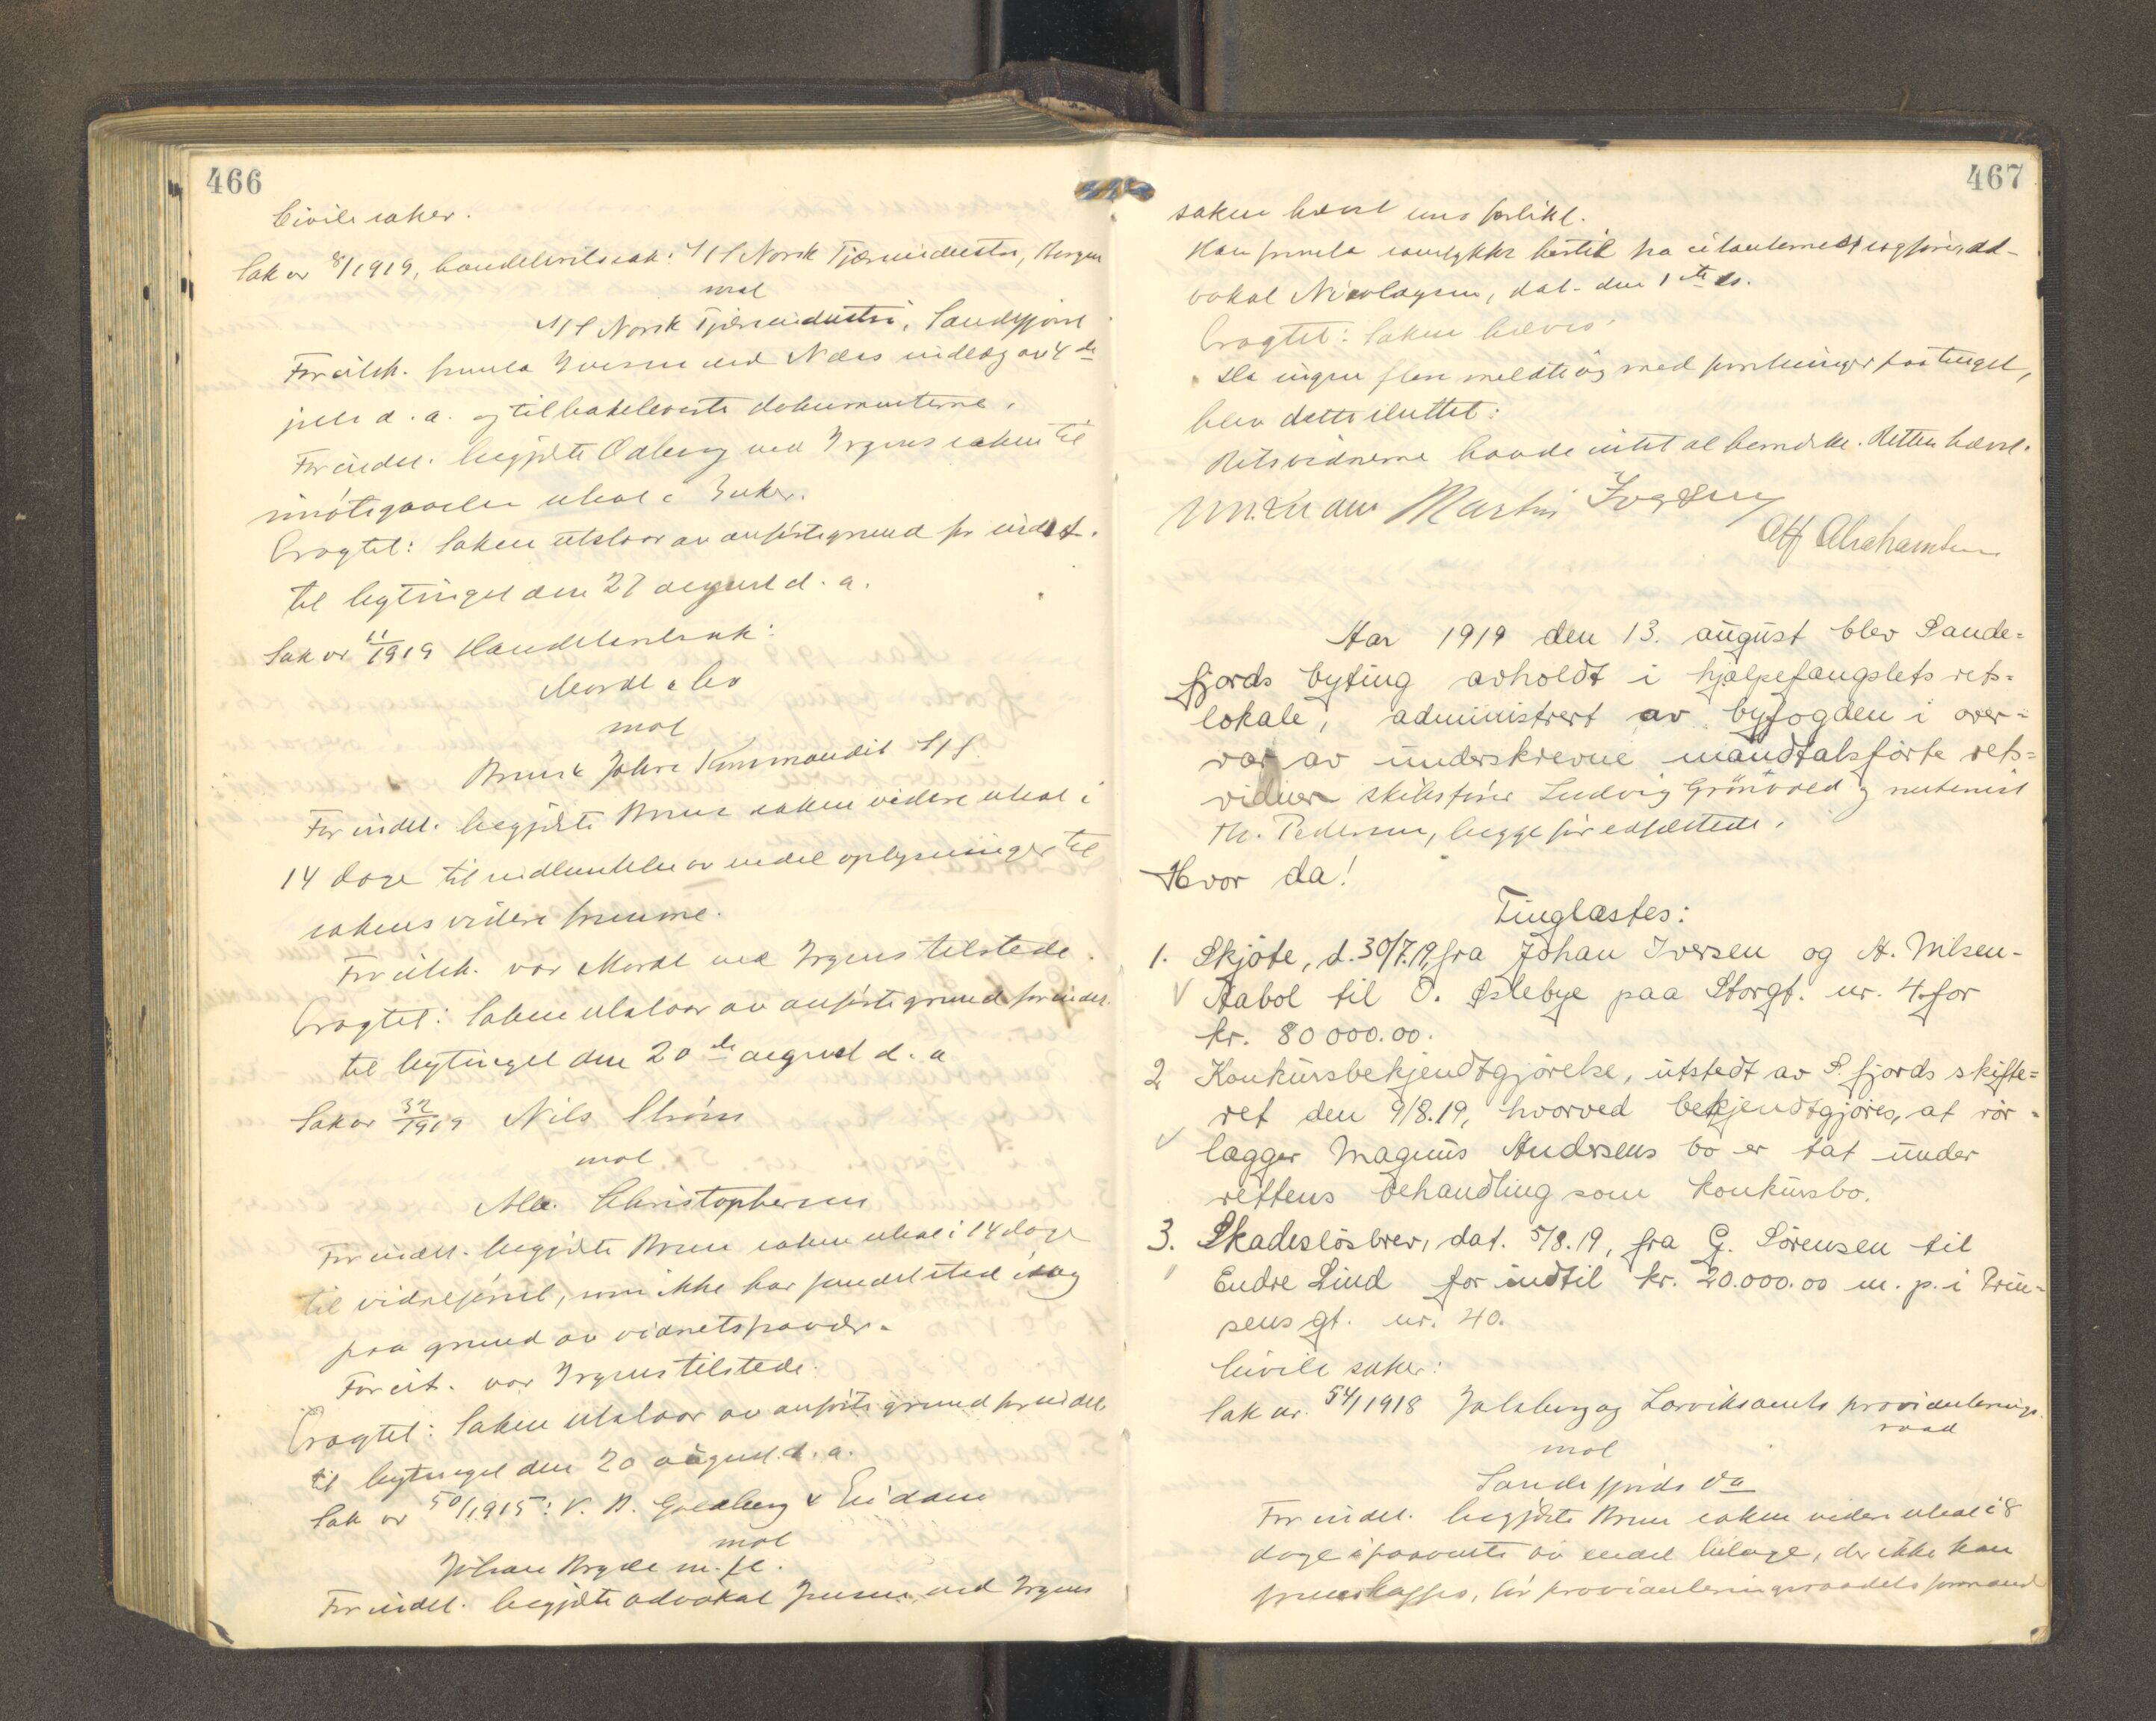 466
Civile saker.
Sak nr 8/1919, handelsretssak: A/S Norsk Tjæreindustri, Bergen
mot
A/S Norsk Tjæreindustri, Sandefjord
For citch. fremla Iversen ved Næss indlæg av 4de
juli d. a. og tilbakeleverte dokumenterne.
For indst. begjærte Odberg ved Irgens saken til
imøtegaaelse utsat 2 uker.
Eragtet: Saken utstaar av anførte grund for indst.
til bytinget den 27 august d. a.
Sak nr 11/1919 Handelsretssak:
Mordt & Co
mot
Bruns & Jahre Kommandit S/S
For indst. begjærte Bruun saken videre utsat i
14 dage til indhentelse av endel oplysninger til
sakens videre fremme.
For citch. var Mordt ved Irgens tilstede.
Eragtet: Saken utstaar av anførte grund for indst.
til bytinget den 20de august d. a
Sak nr 32/1919 Nils Strøm
mot
Alb. Christophersen
For indst. begjærte Bruun saken utsat i 14 dage
til vidneførsel, som ikke har fundet sted idag
paa grund av vidnets fravær.
For cit. var Irgens tilstede.
Eragtet: Saken utstaar av anførte grund for indst.
til bytinget den 20 august d. a.
Sak nr 50/1915: V. B. Goldberg & Eidam
mot
Johan Bryde m. fl.
For indst. begjærte advokat Jensen ved Irgens
467
saken hævet som forlikt.
Han fremla samtykke hertil fra citanternes sagfører, ad-
vokat Nicolaysen, dat. den 1ste ds.
Eragtet: Saken hæves.
Da ingen flere meldte sig med forretninger paa tinget,
blev dette sluttet:
Retsvidnerne havde intet at bemerke. Retten hævet.
Martin Iversen
Alf Abrahamsen
Aar 1919 den 13. august blev Sande=
fjords byting avholdt i hjælpefængslets rets=
lokale, administrert av byfogden i over=
vær av underskrevne mandtalsførte rets=
vidner skibsfører Ludvig Grønvold og
Th. Pedersen, begge før edfæstede.
Hvor da!
Tinglæstes:
1. Skjøte, d. 30/7.19, fra Johan Iversen og A. Nilsen-
Aabol til O. Østebye paa Storgt. nr. 4. for
kr. 80 000.00.
2 Konkursbekjendtgjørelse, utstedt av S. fjords skifte=
ret den 9/8.19, hvorved bekjendtgjøres, at rør=
lægger Magnus Andersens bo er tat under
rettens behandling som konkursbo.
3. Skadesløsbrev, dat. 5/8.19, fra G. Sørensen til
Endre Lind for indtil kr. 20.000.00 m. p. i Prin-
sensgt. nr. 40.
Civile saker:
Sak nr. 54/1918 Jarlsberg og Larviks amts provianterings
raad
mot
Sandefjords do
For indst. begjærte Bruun saken videre utsat i 8
dage i paavente av endel bilage, der ikke kan
fremskaffes, før provianteringsraadets formand